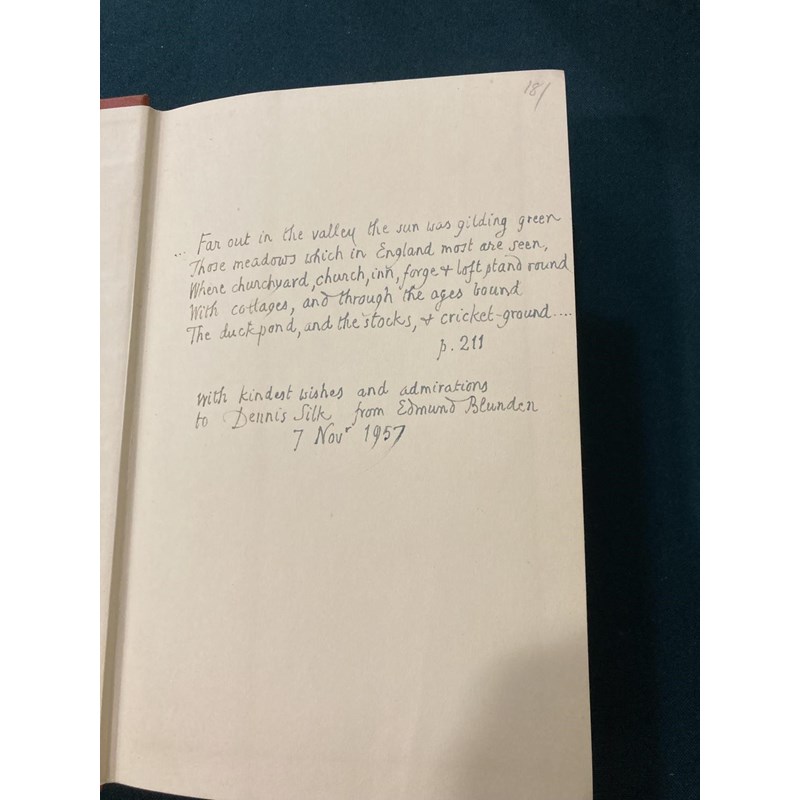 18/
... Far out in the valley the sun was gilding green
Those meadows which in England most are seen,
Where churchyard, church, inn, forge & loft stand round
With cottages, and through the ages bound
The duckpond, and the stocks, & cricket-ground....
p. 211
with kindest wishes and admirations
to Dennis Silk from Edmund Blunden
7 Novr 1957